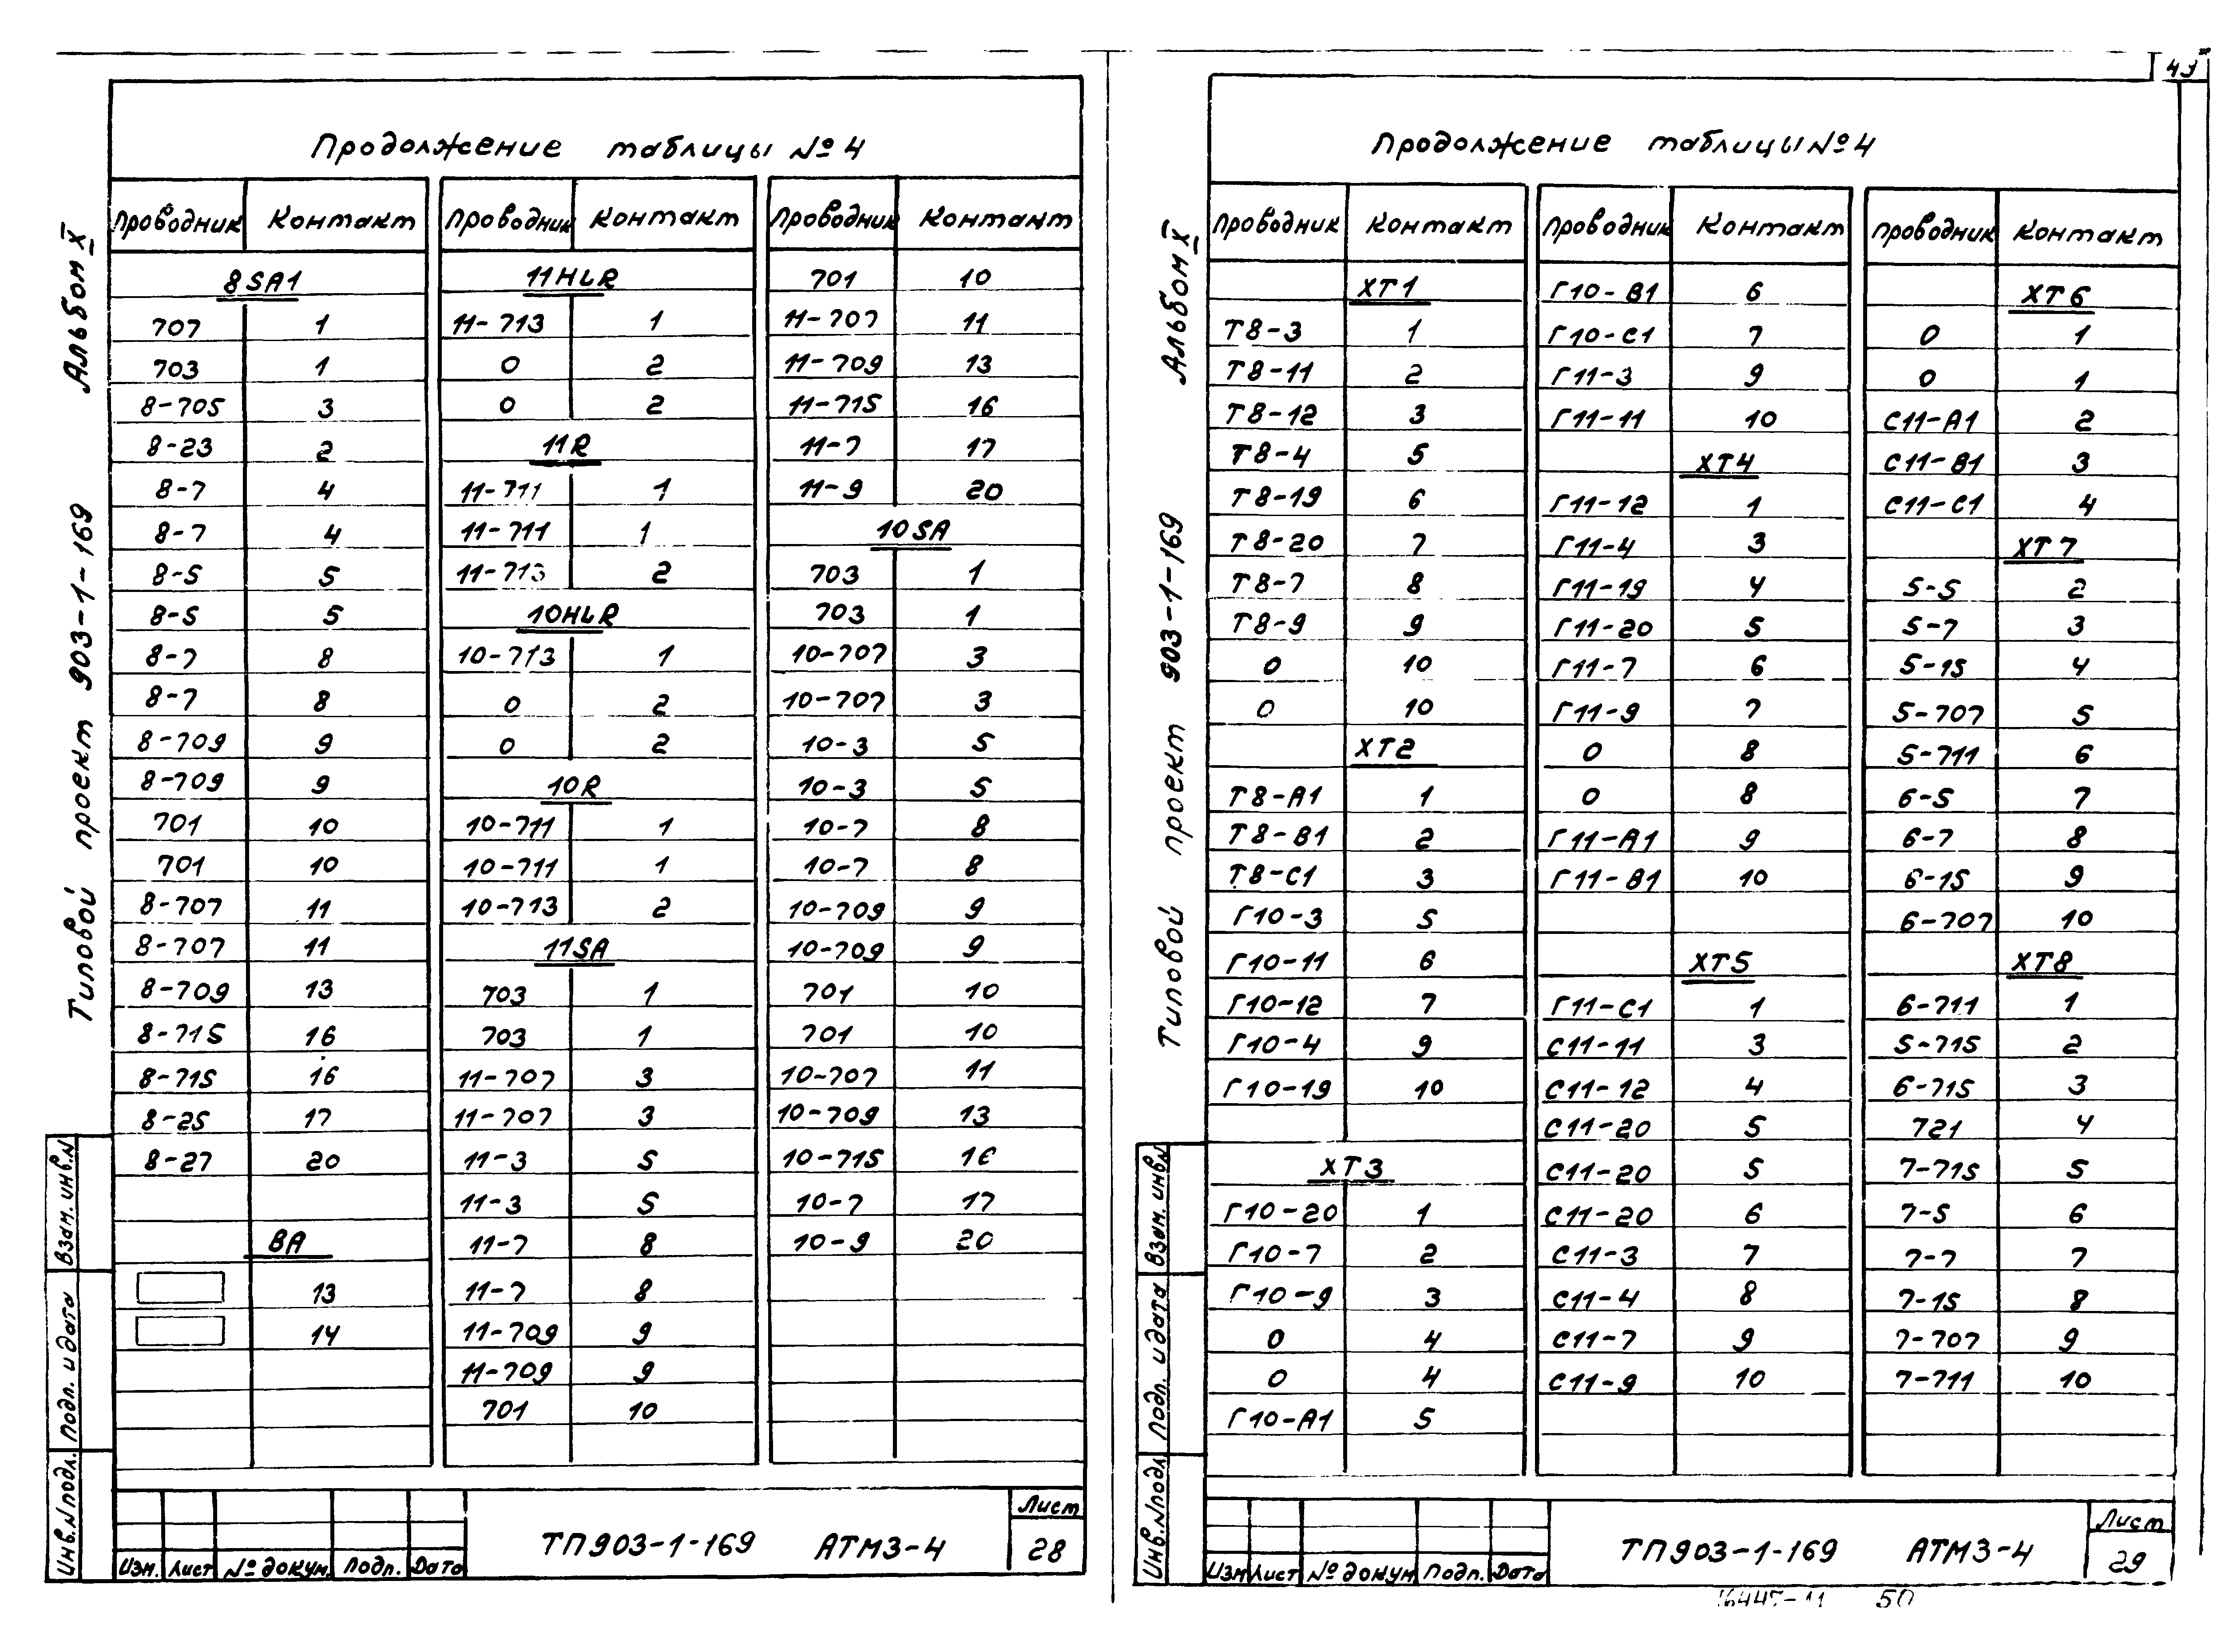 49
Продолжение таблицы №4
Проводник Контакт Проводник Контакт Проводник Контакт
8SA1 11HLR 701 10
707 1 11-713 1 11-707 11
703 1 0 2 11-709 13
8-705 3 0 2 11-715 16
8-23 2 11R 11-7 17
8-7 4 11-711 1 11-9 20
8-7 4 11-711 1 10SA
8-5 5 11-713 2 703 1
8-5 5 10HLR 703 1
8-7 8 10-713 1 10-707 3
8-7 8 0 2 10-707 3
8-709 9 0 2 10-3 5
8-709 9 10R 10-3 5
701 10 10-711 1 10-7 8
701 10 10-711 1 10-7 8
8-707 11 10-713 2 10-709 9
8-707 11 11SA 10-709 9
8-709 13 703 1 701 10
8-715 16 703 1 701 10
8-715 16 11-707 3 10-707 11
8-25 17 11-707 3 10-709 13
8-27 20 11-3 5 10-715 16
11-3 5 10-7 17
ВА 11-7 8 10-9 20
13 11-7 8
14 11-709 9
11-709 9
701 10
Альбом X
Типовой проект 903-1-169
Взам. инв.N
Подп. и дата
Инв.Nподл.
Изм. Лист № докум. Подп. Дата
ТП903-1-169 АТМ3-4
Лист
28
Продолжение таблицы №4
Проводник Контакт Проводник Контакт Проводник Контакт
ХТ1 Г10-В1 6 ХТ6
Т8-3 1 Г10-С1 7 0 1
Т8-11 2 Г11-3 9 0 1
Т8-12 3 Г11-11 10 С11-А1 2
Т8-4 5 ХТ4 С11-В1 3
Т8-19 6 Г11-12 1 С11-С1 4
Т8-20 7 Г11-4 3 ХТ7
Т8-7 8 Г11-19 4 5-5 2
Т8-9 9 Г11-20 5 5-7 3
0 10 Г11-7 6 5-15 4
0 10 Г11-9 7 5-707 5
ХТ2 0 8 5-711 6
Т8-А1 1 0 8 6-5 7
Т8-В1 2 Г11-А1 9 6-7 8
Т8-С1 3 Г11-В1 10 6-15 9
Г10-3 5 6-707 10
Г10-11 6 ХТ5 ХТ8
Г10-12 7 Г11-С1 1 6-711 1
Г10-4 9 С11-11 3 5-715 2
Г10-19 10 С11-12 4 6-715 3
С11-20 5 721 4
ХТ3 С11-20 5 7-715 5
Г10-20 1 С11-20 6 7-5 6
Г10-7 2 С11-3 7 7-7 7
Г10-9 3 С11-4 8 7-15 8
0 4 С11-7 9 7-707 9
0 4 С11-9 10 7-711 10
Г10-А1 5
Альбом X
Типовой проект 903-1-169
Взам. инвN
Подп. и дата
Инв.Nподл
Изм Лист № докум Подп. Дата
ТП903-1-169 АТМ3-4
Лист
29
16447-11 50